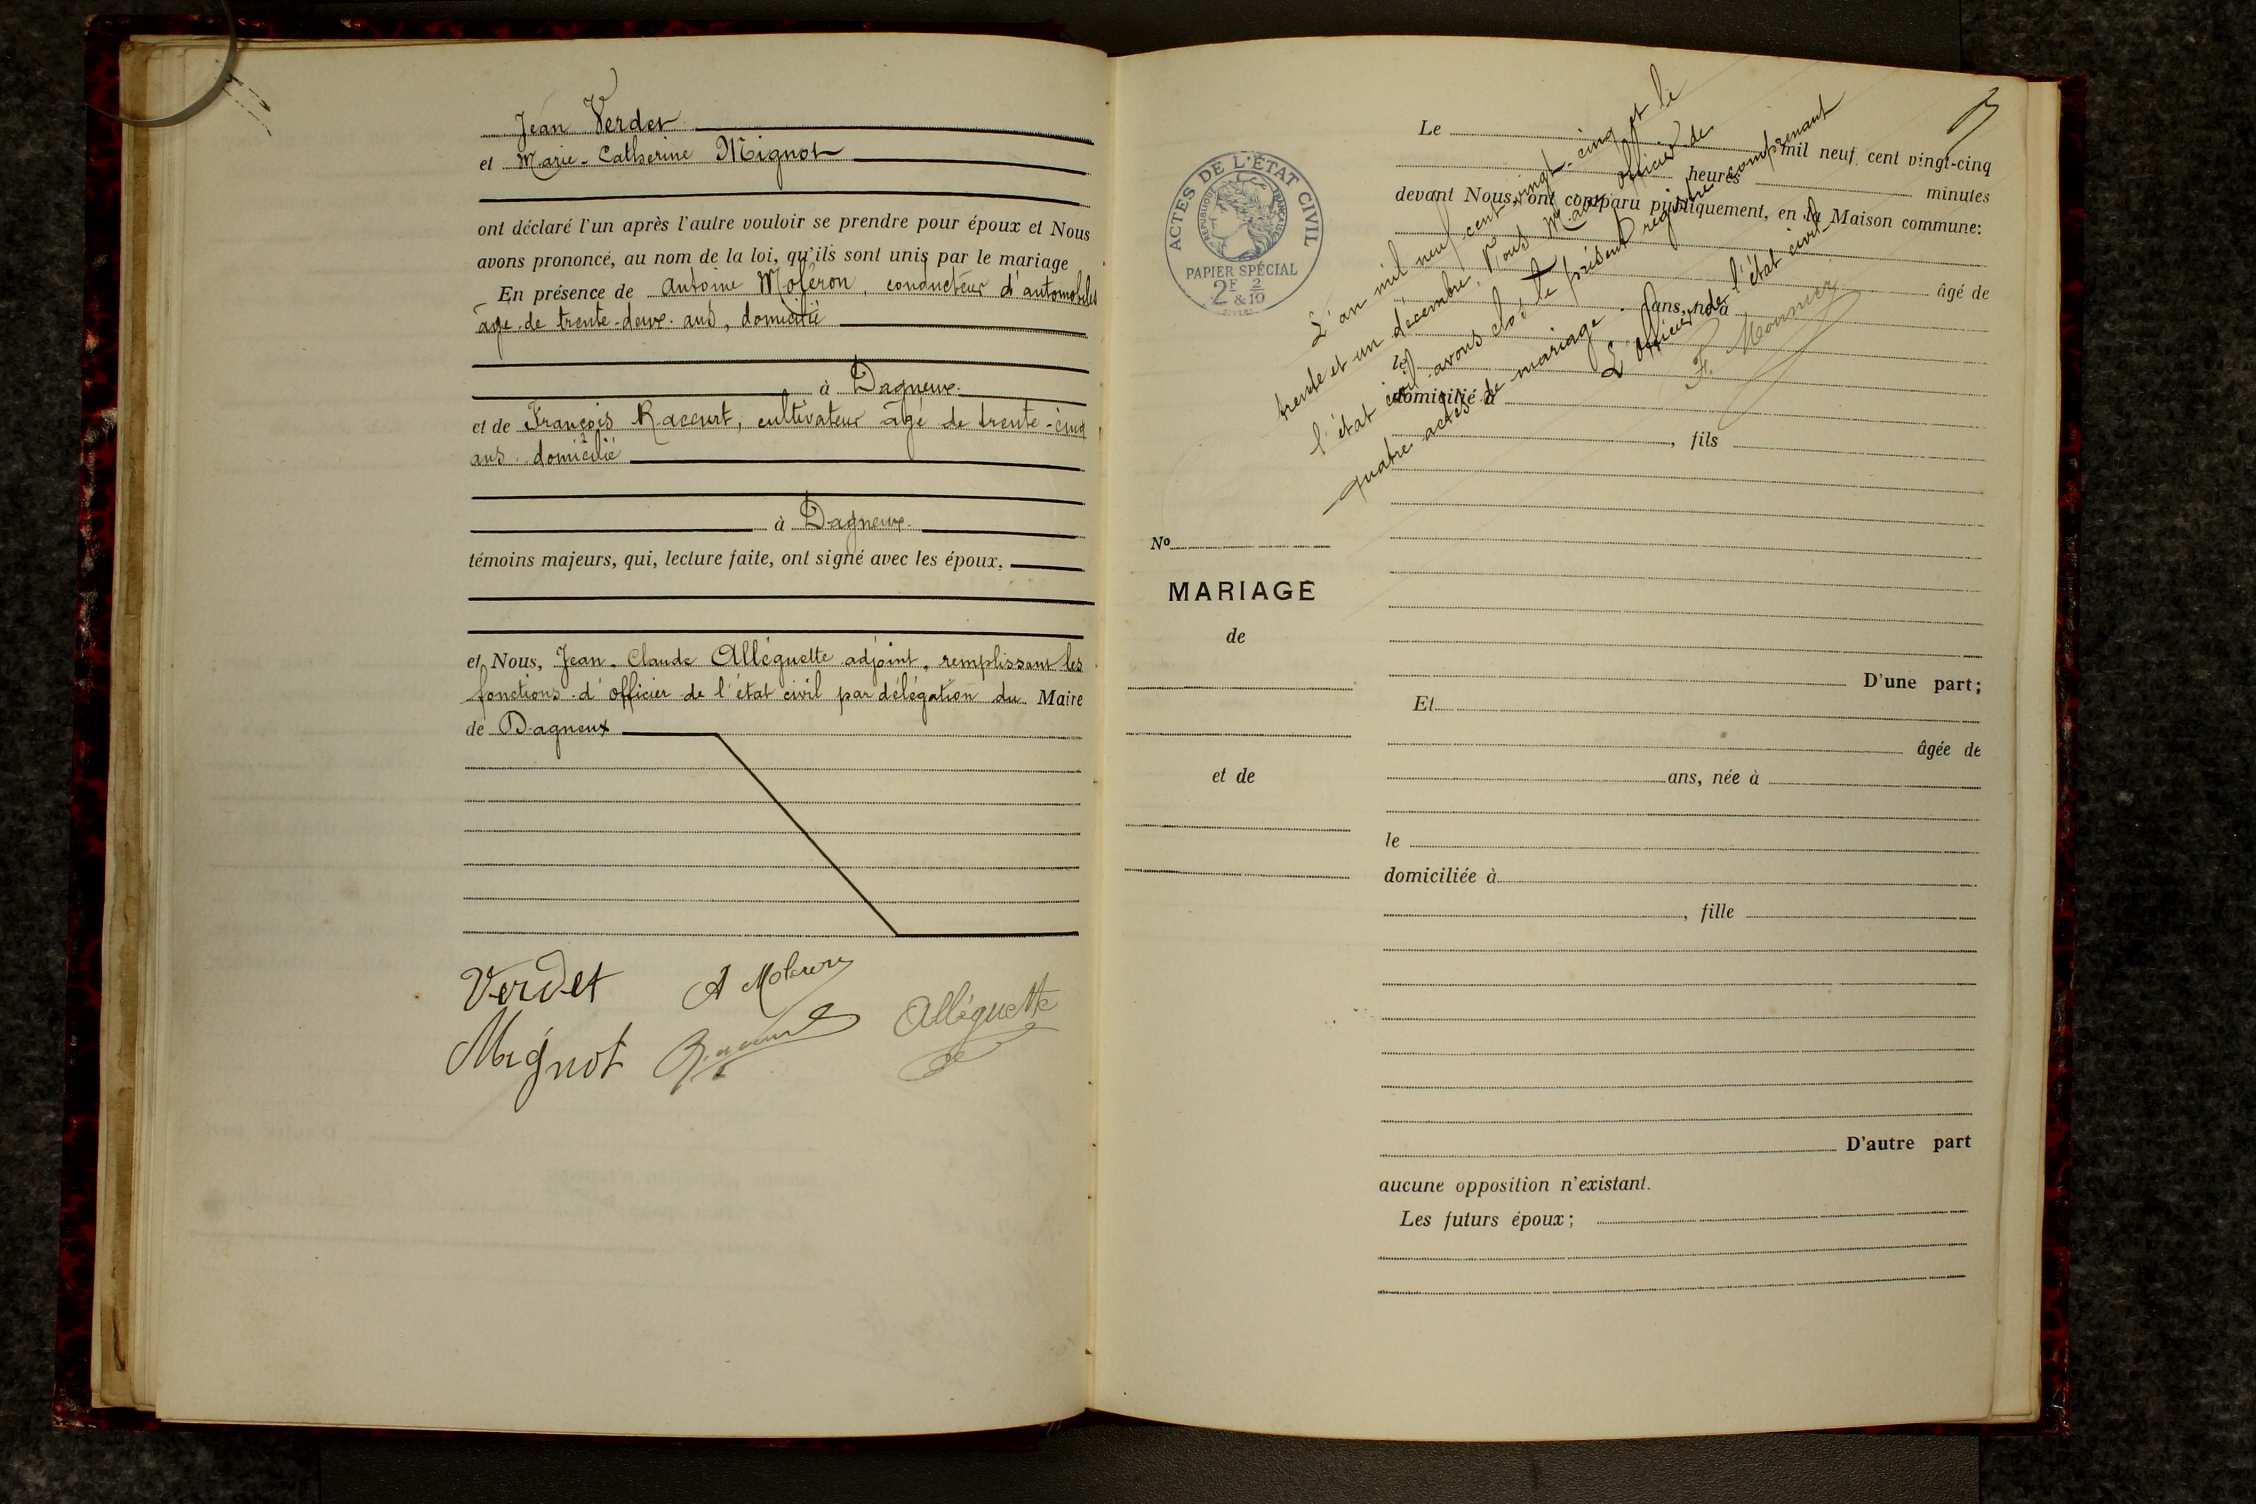 Jean Verdet
et Marie-Catherine Mignot
ont déclaré l'un après l'autre vouloir se prendre pour époux et Nous
avons prononcé, au nom de la loi, qu'ils sont unis par le mariage
En présence de Antoine Moléron, conducteur d'automobiles
âgé de trente-deux ans, domicilié
à Dagneux
et de François Raccurt, cultivateur âgé de trente-cinq
ans domicilié
à Dagneux
témoins majeurs, qui, lecture faite, ont signé avec les époux,
et Nous, Jean-Claude Alléguette adjoint, remplissant les
fonctions d'officier de l'état civil par délégation du Maire
de Dagneux
Verdet A Moleron
Mignot Raccurt Alléguette
ACTES DE L'ÉTAT CIVIL
RÉPUBLIQUE FRANÇAISE
PAPIER SPÉCIAL
2F 2
& 10
L'an mil neuf cent vingt-cinq et le
trente et un décembre, Nous Maire officier de
l'état civil avons clos le présent registre comprenant
quatre actes de mariage.
L'officier de l'état civil
F. Mounier
Le
mil neuf cent vingt-cinq
heures minutes
devant Nous, ont comparu publiquement, en la Maison commune:
âgé de
ans, né à
le
domicilié à
, fils
No
MARIAGE
de
et de
D'une part;
Et
âgée de
ans, née à
le
domiciliée à
, fille
D'autre part
aucune opposition n'existant.
Les futurs époux;